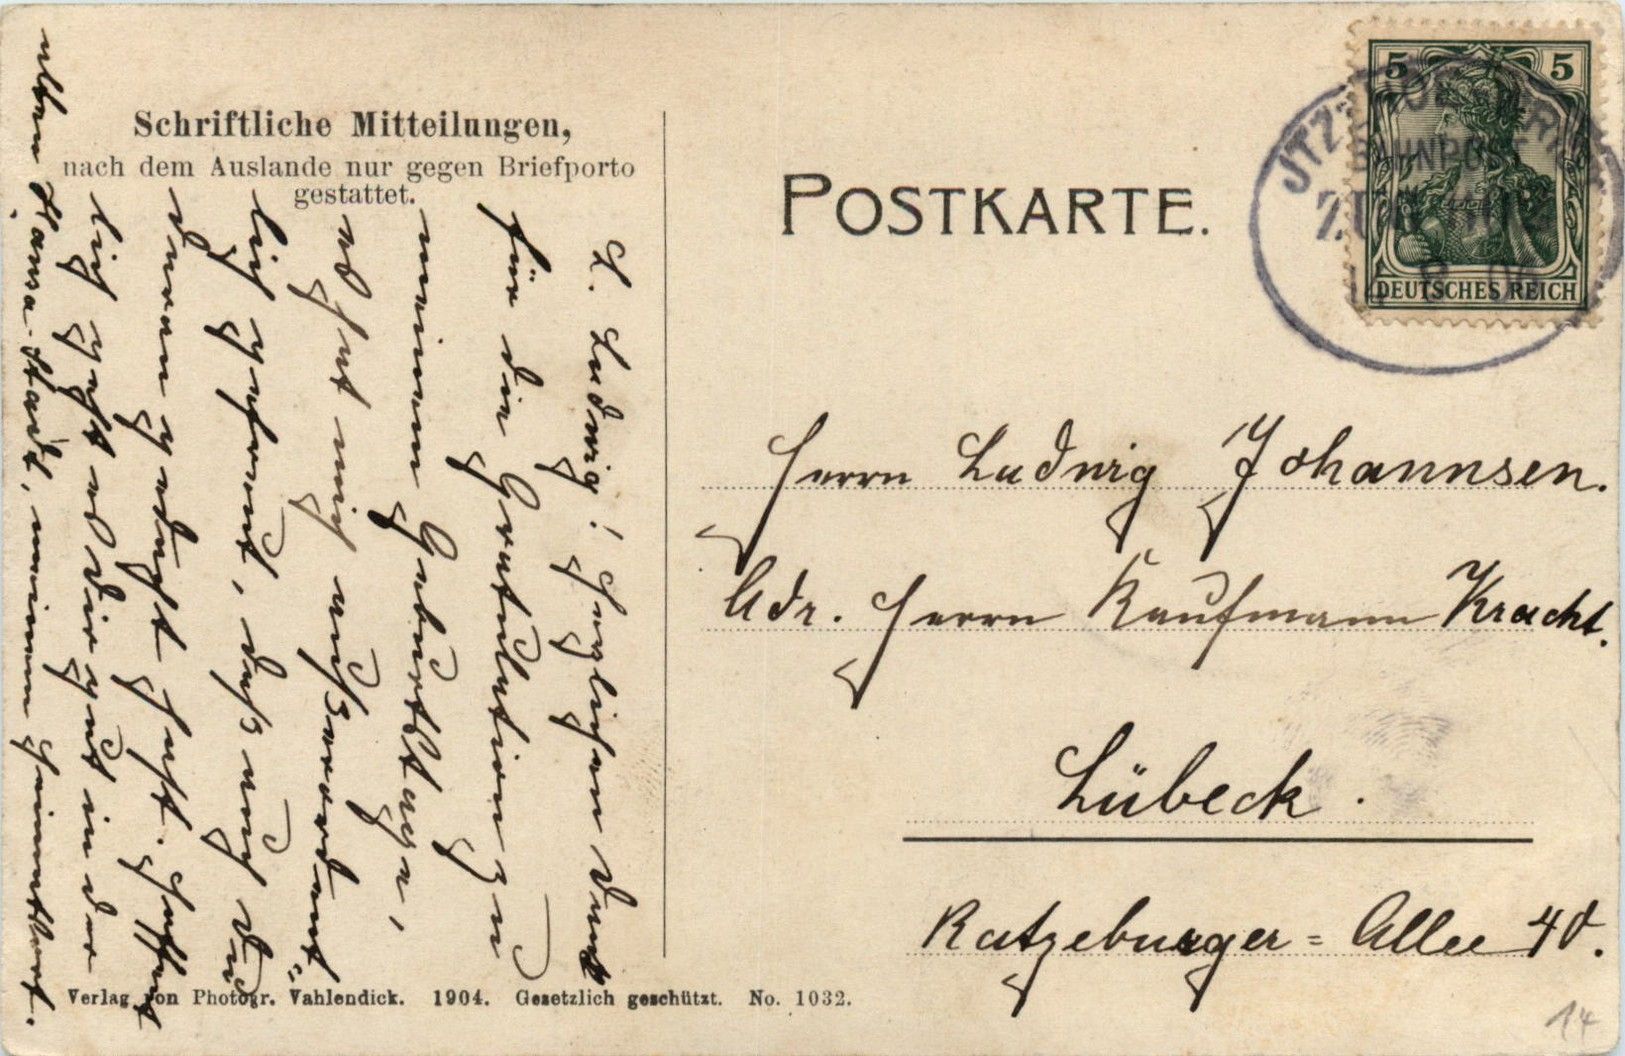 Schriftliche Mitteilungen,
nach dem Auslande nur gegen Briefporto
gestattet.
L. Ludwig! Herzlichen Dank
für die Gratulation zu
meinem Geburtstage,
es hat mich außerordent=
lich gefreut, daß auch Du
daran gedacht hast. Hoffent
lich geht es Dir gut in der
alten Hansa-Stadt, meinem
Verlag von Photogr. Vahlendick. 1904. Gesetzlich geschützt. No. 1032.
POSTKARTE.
5 5
DEUTSCHES REICH
BAHNPOST
ZUG
Herrn Ludwig Johannsen.
Adr. Herrn Kaufmann Kracht.
Lübeck.
Ratzeburger=Allee
14